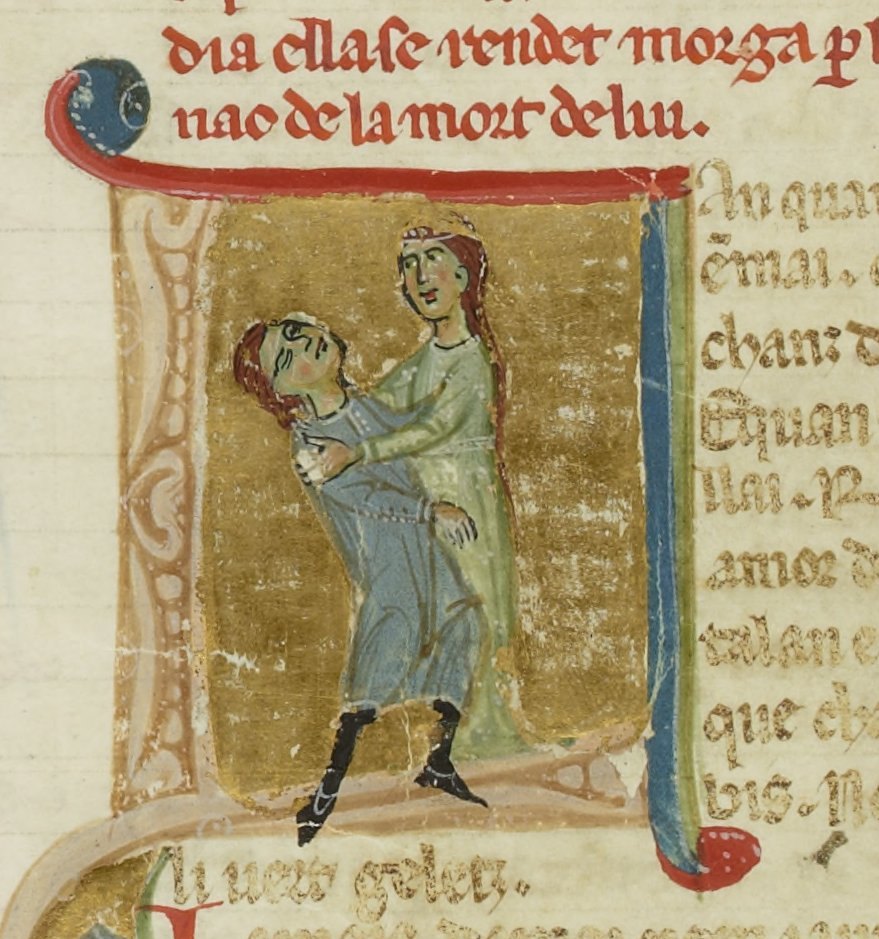 dia ella se rendet morga per l
nao de la mort de lui.
An quan
ē mai. e
chanz d
E quan
llai. P
amor d
talan e
que ch
vis. N
li uert geletz.